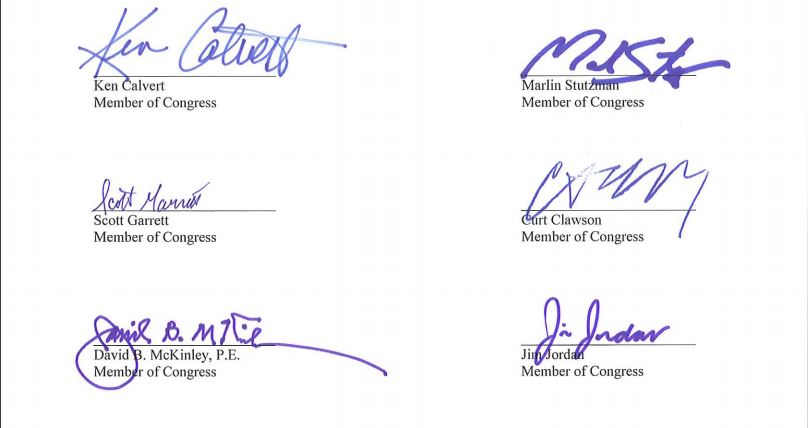 Ken Calvert
Ken Calvert
Member of Congress
Marlin Stutzman
Member of Congress
Scott Garrett
Scott Garrett
Member of Congress
Curt Clawson
Member of Congress
David B. McKinley
David B. McKinley, P.E.
Member of Congress
Jim Jordan
Jim Jordan
Member of Congress